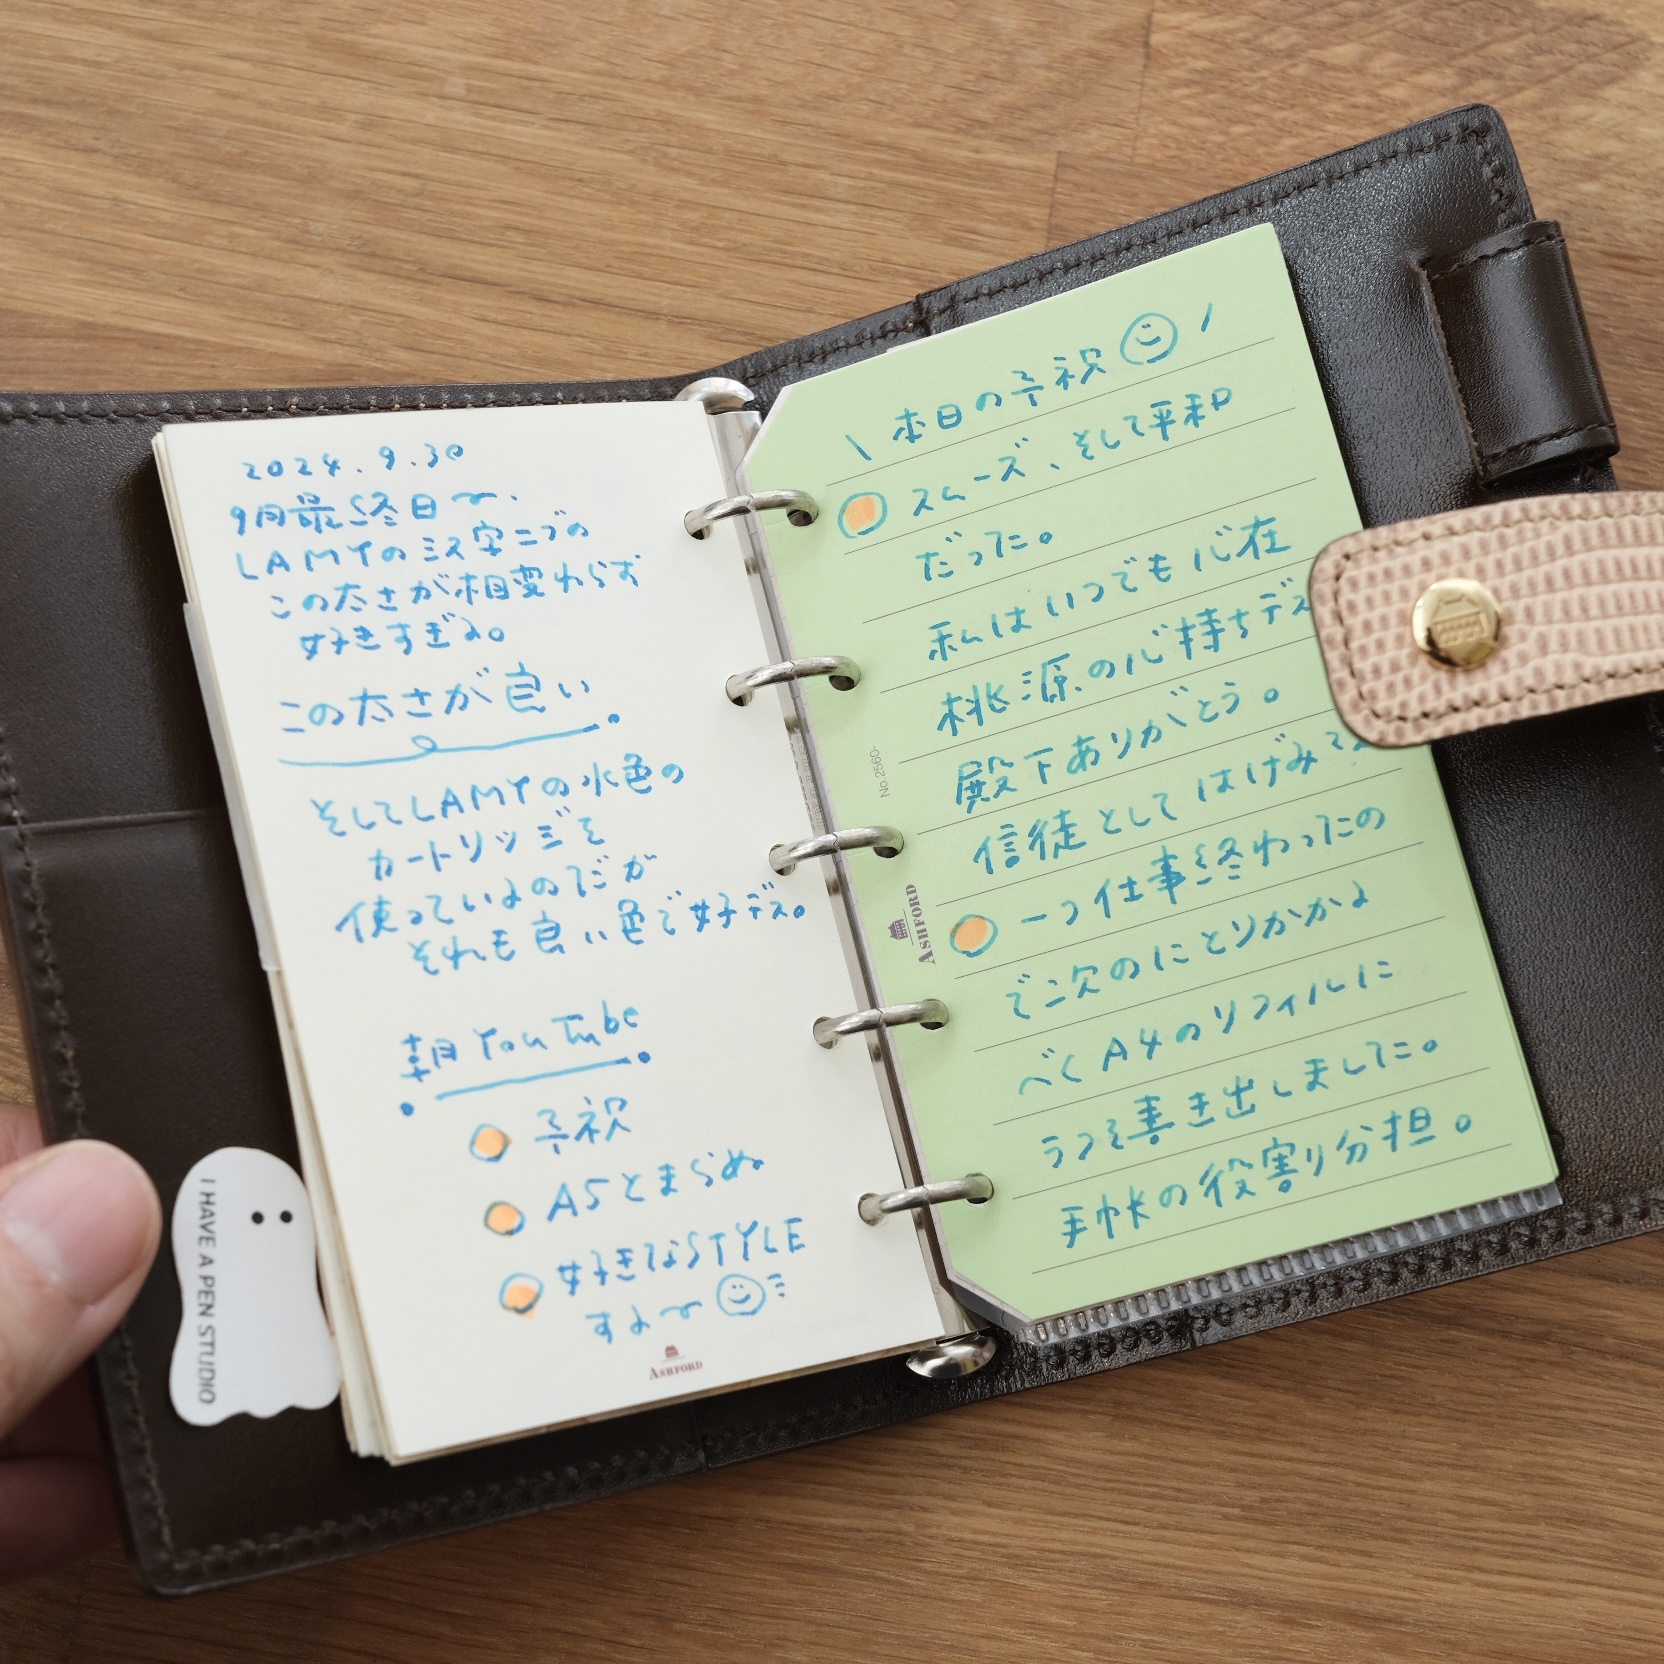 2024.9.30
9月最終日〜.
LAMYのミス字ニブの
この太さが相変わらず
好きすぎる。
この太さが良い
そしてLAMYの水色の
カートリッジを
使っているのだが
それも良い色で好デス。
朝YouTube
予祝
A5とまらぬ
好きなSTYLE
する〜
ASHFORD
I HAVE A PEN STUDIO
\ 本日の予祝 /
スムーズ、そして平和
だった。
私はいつでも心在
桃源の心持ちデス
殿下ありがとう。
信徒としてはげみ
一つ仕事終わったの
で次のにとりかかる
べくA4のリフィルに
ラフを書き出しました。
手帳の役割り分担。
No.2560-
ASHFORD